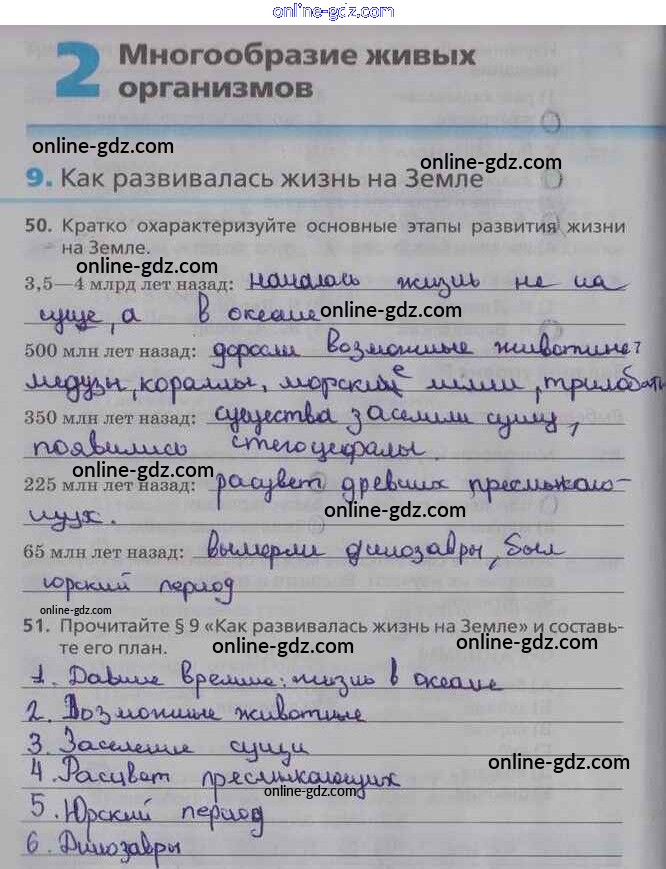 online-gdz.com
2 Многообразие живых
организмов
online-gdz.com
online-gdz.com
9. Как развивалась жизнь на Земле
50. Кратко охарактеризуйте основные этапы развития жизни
на Земле.
online-gdz.com
online-gdz.com
3,5—4 млрд лет назад: началась жизнь не на
суше, а в океане
online-gdz.com
500 млн лет назад:
возможные животные:
медузы, кораллы, морские лилии, трилобиты
online-gdz.com
online-gdz.com
350 млн лет назад: существа заселили сушу,
появились стегоцефалы.
online-gdz.com
online-gdz.com
225 млн лет назад: расцвет древних пресмыкаю-
щих.
online-gdz.com
online-gdz.com
65 млн лет назад: вымерли динозавры, был
юрский период
online-gdz.com
online-gdz.com
online-gdz.com
51. Прочитайте § 9 «Как развивалась жизнь на Земле» и составь-
те его план.
online-gdz.com
1. Давние времена: жизнь в океане
2. Возможные животные
online-gdz.com
3. Заселение суши
online-gdz.com
4. Расцвет пресмыкающих
online-gdz.com
online-gdz.com
5. Юрский период
6. Динозавры
online-gdz.com